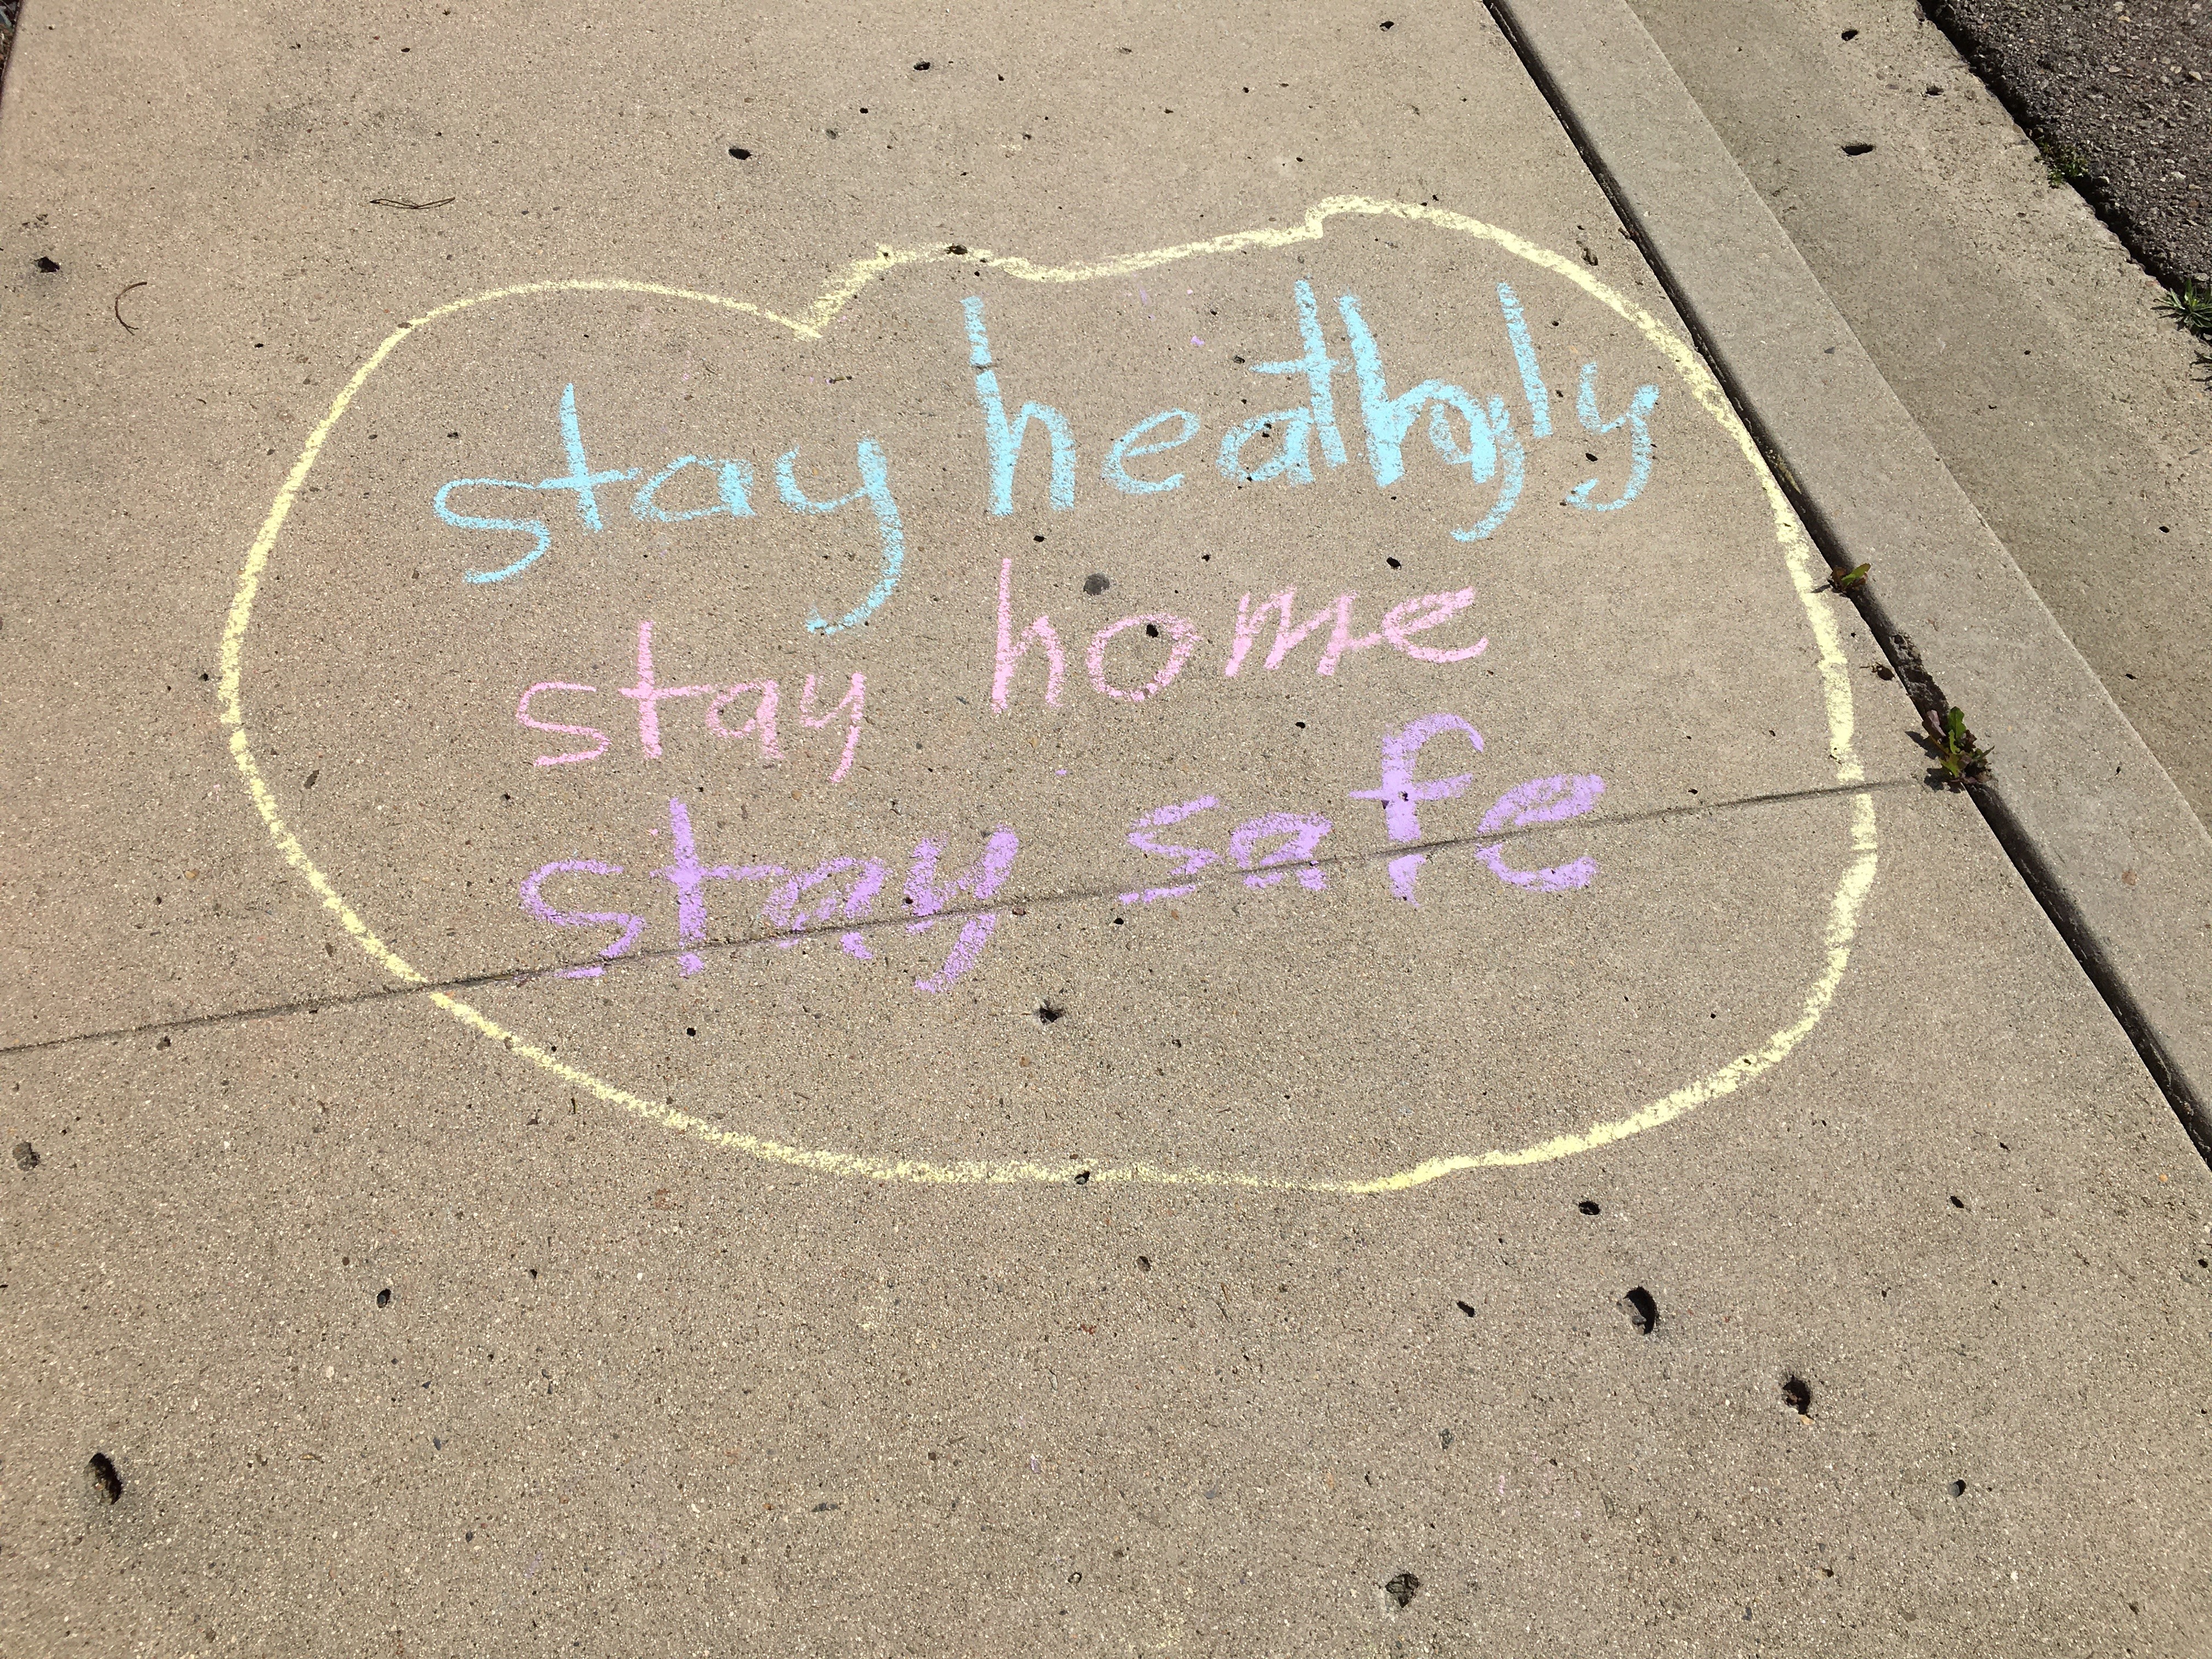 stay heathly
stay home
stay safe